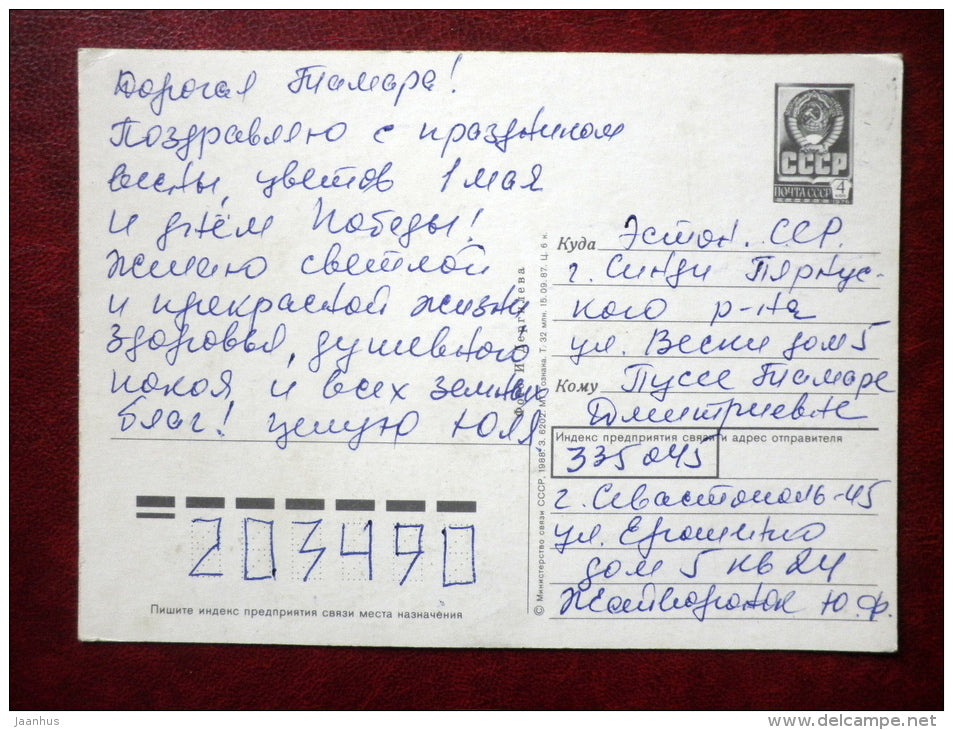 Дорогая Тамара!
Поздравляю с праздником
весны, цветов 1 мая
и днём Победы!
Желаю светлой
и прекрасной жизни
здоровья, душевного
покоя и всех земных
благ! Целую Юля
ПОЧТА СССР
СССР
4
1976
Куда Эстон. ССР.
г. Синди Пярнус-
кого р-на
ул. Вески дом 5
Кому Пуссе Тамаре
Дмитриевне
Индекс предприятия связи и адрес отправителя
335045
г. Севастополь-45
ул. Ерошенко
дом 5 кв 24
Жайворонок Ю.Ф.
203490
Пишите индекс предприятия связи места назначения
© Министерство связи СССР, 1988. З. 6202. МТ Гознака. Т. 32 млн. 15.09.87. Ц. 6 к.
Фото И.
jaanhus
www.delcampe.net